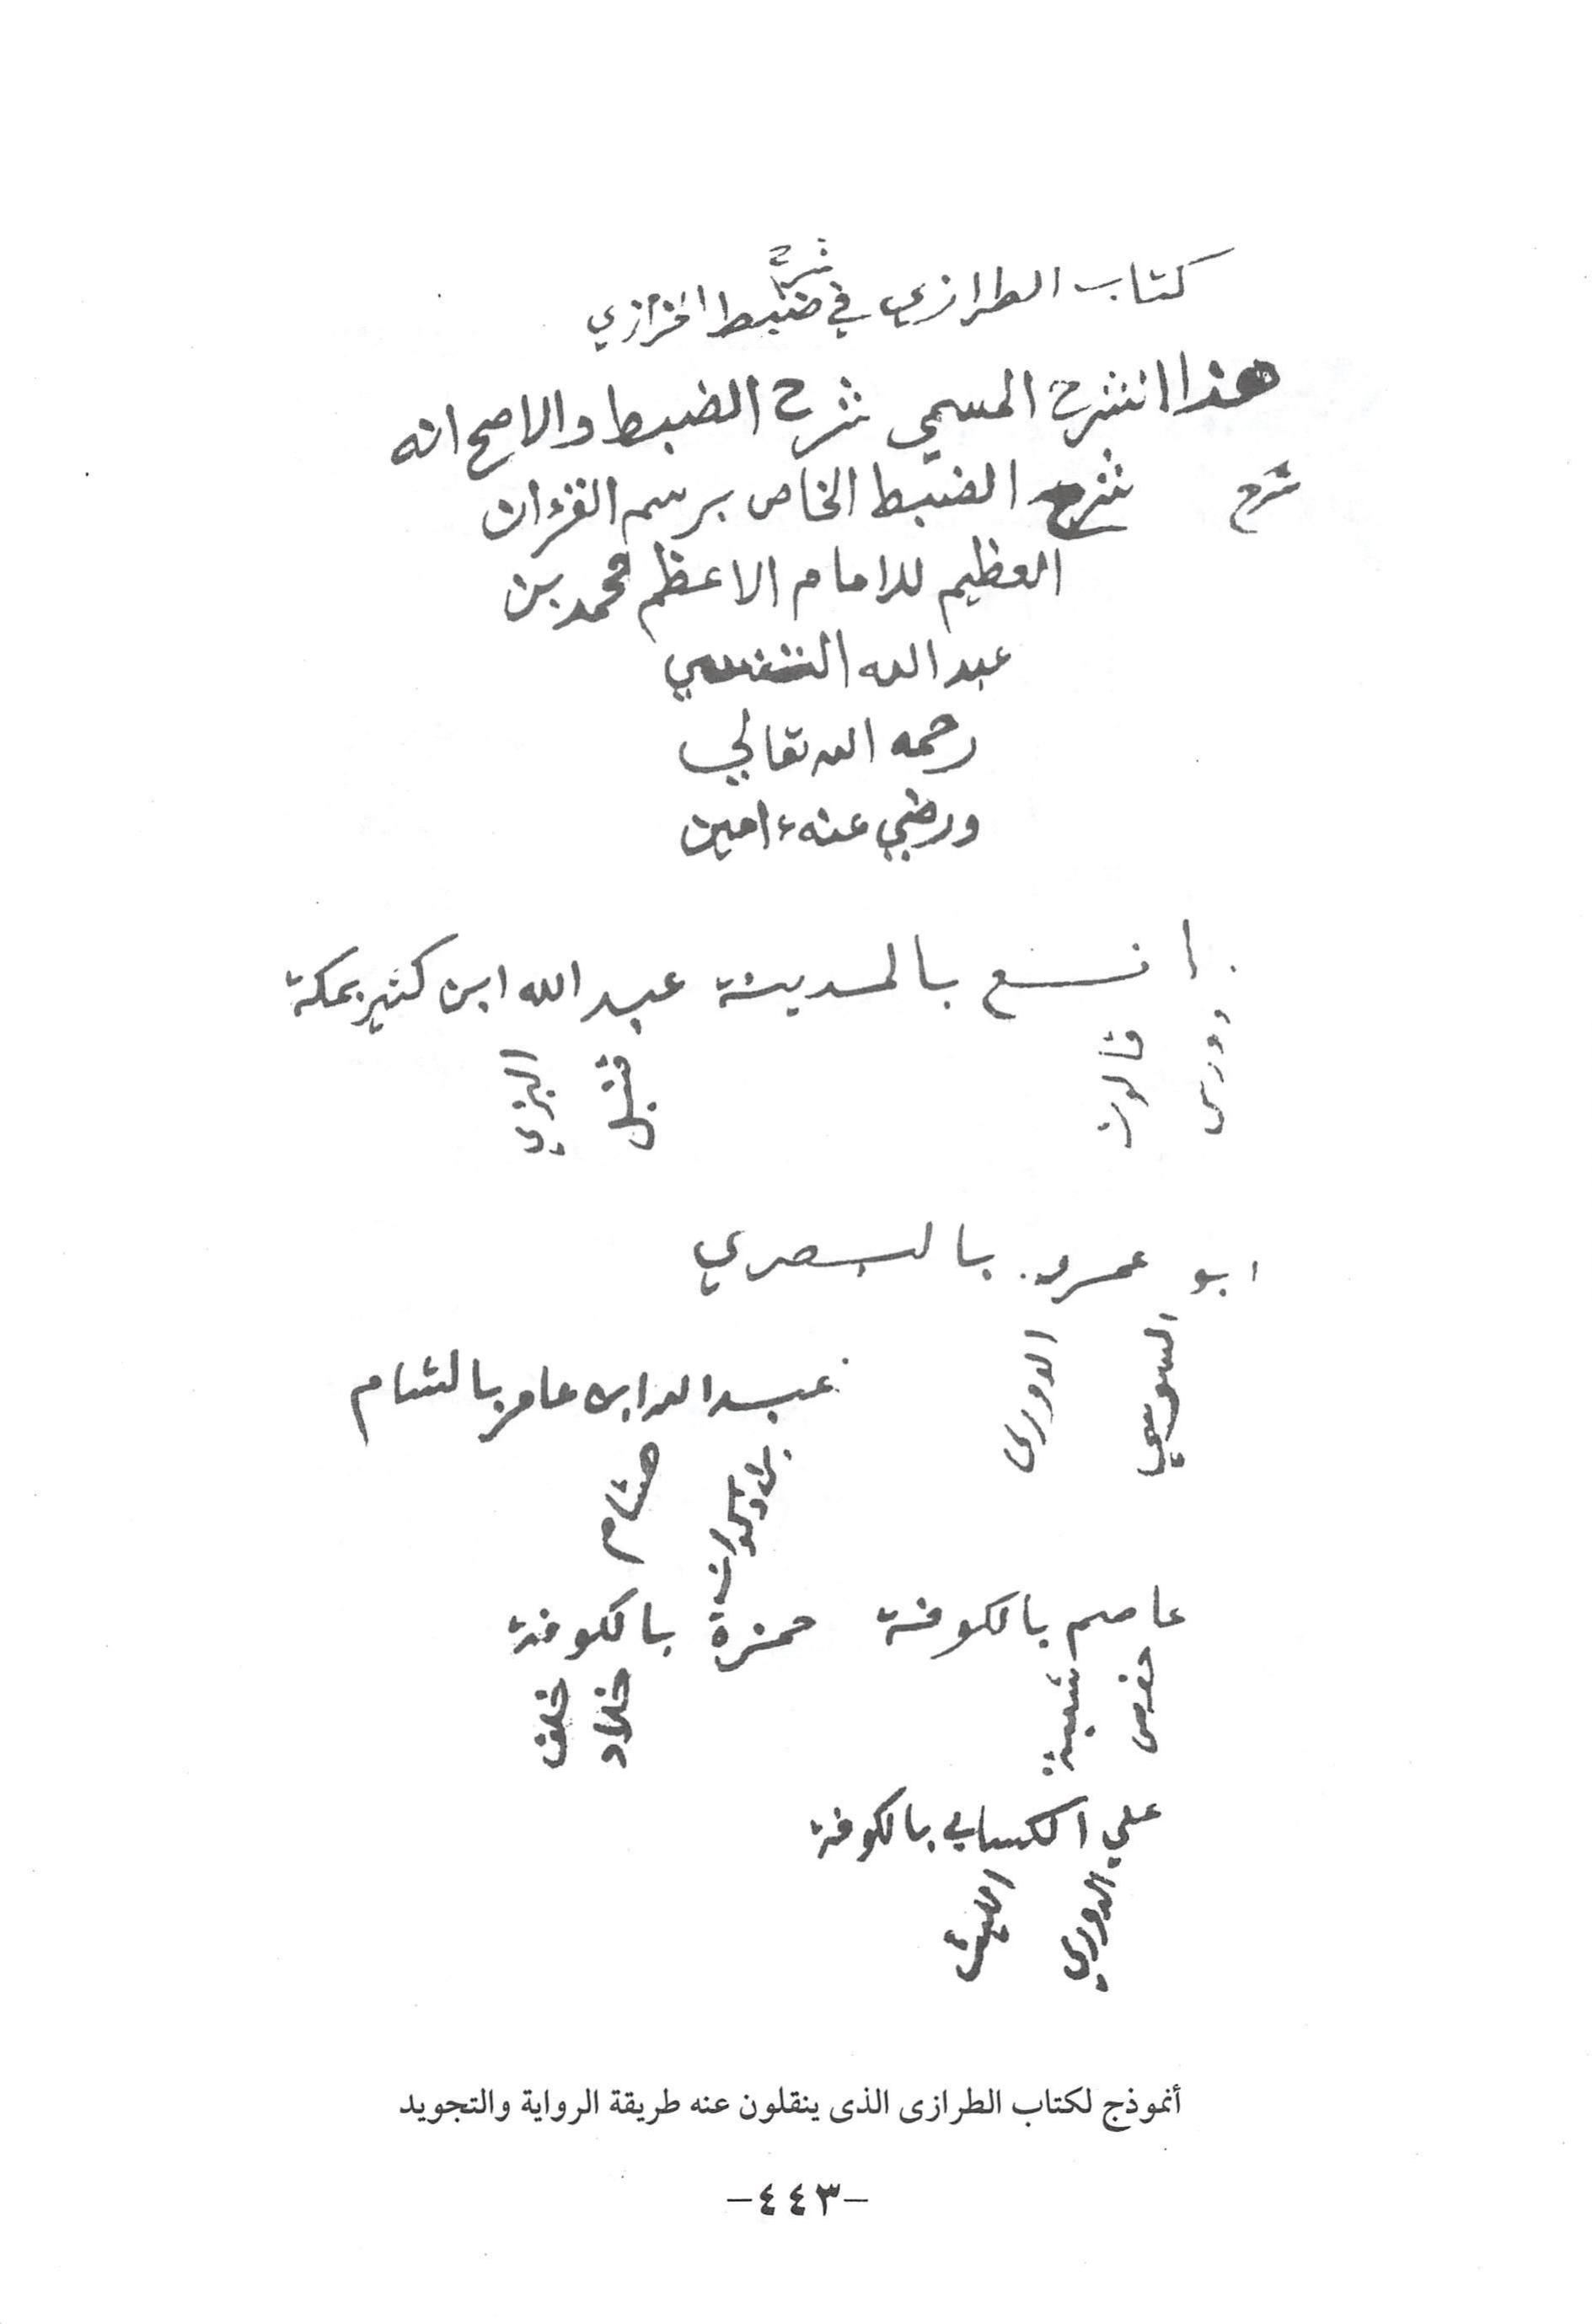 كتاب الطرازي في شرح ضبط الخرازي
هذا الشرح المسمي شرح الضبط والاصح انه
شرح شرح الضبط الخاص برسم القرءان
العظيم للامام الاعظم محمد بن
عبد الله التنسي
رحمه الله تعالي
ورضي عنه ءامين
بالمدينة عبد الله ابن كثير بمكة
ورش
قالون
قنبل
البزي
ابو عمرو بالبصري
السوسي
الدوري
عبد الله ابن عامر بالشام
هشام
عاصم بالكوفة حمزة بالكوفة
حفص
شعبة
خلاد
خلف
علي الكسايي بالكوفة
الدوري
الليث
أنموذج لكتاب الطرازى الذى ينقلون عنه طريقة الرواية والتجويد
-٤٤٣-